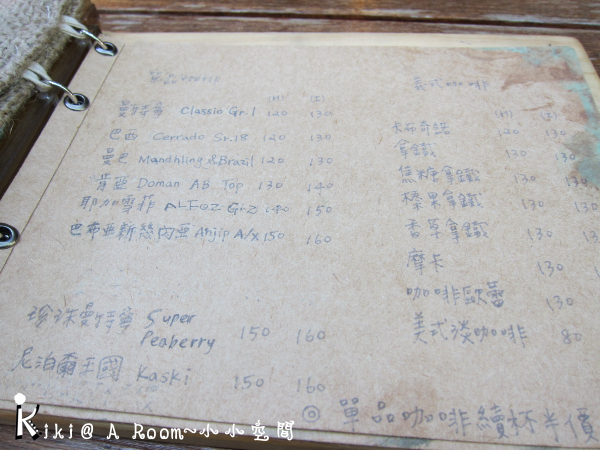 單品
(H) (I)
曼特寧 Classin Gr.1 120 130
巴西 Cerrado Sr.18 120 130
曼巴 Mandhling & Brazil 120 130
肯亞 Doman AB Top 130 140
耶加雪菲 ALFOZ Gr2 140 150
巴布亞新幾內亞 Anjip A/X 150 160
珍珠曼特寧 Super Peaberry 150 160
尼泊爾王國 Kaski 150 160
義式咖啡
(H) (I)
卡布奇諾 120 130
拿鐵 130
焦糖拿鐵 130
榛果拿鐵 130
香草拿鐵
摩卡 130
咖啡歐蕾 130
美式淡咖啡 80
◎ 單品咖啡續杯半價
Kiki@ A Room~小小空間